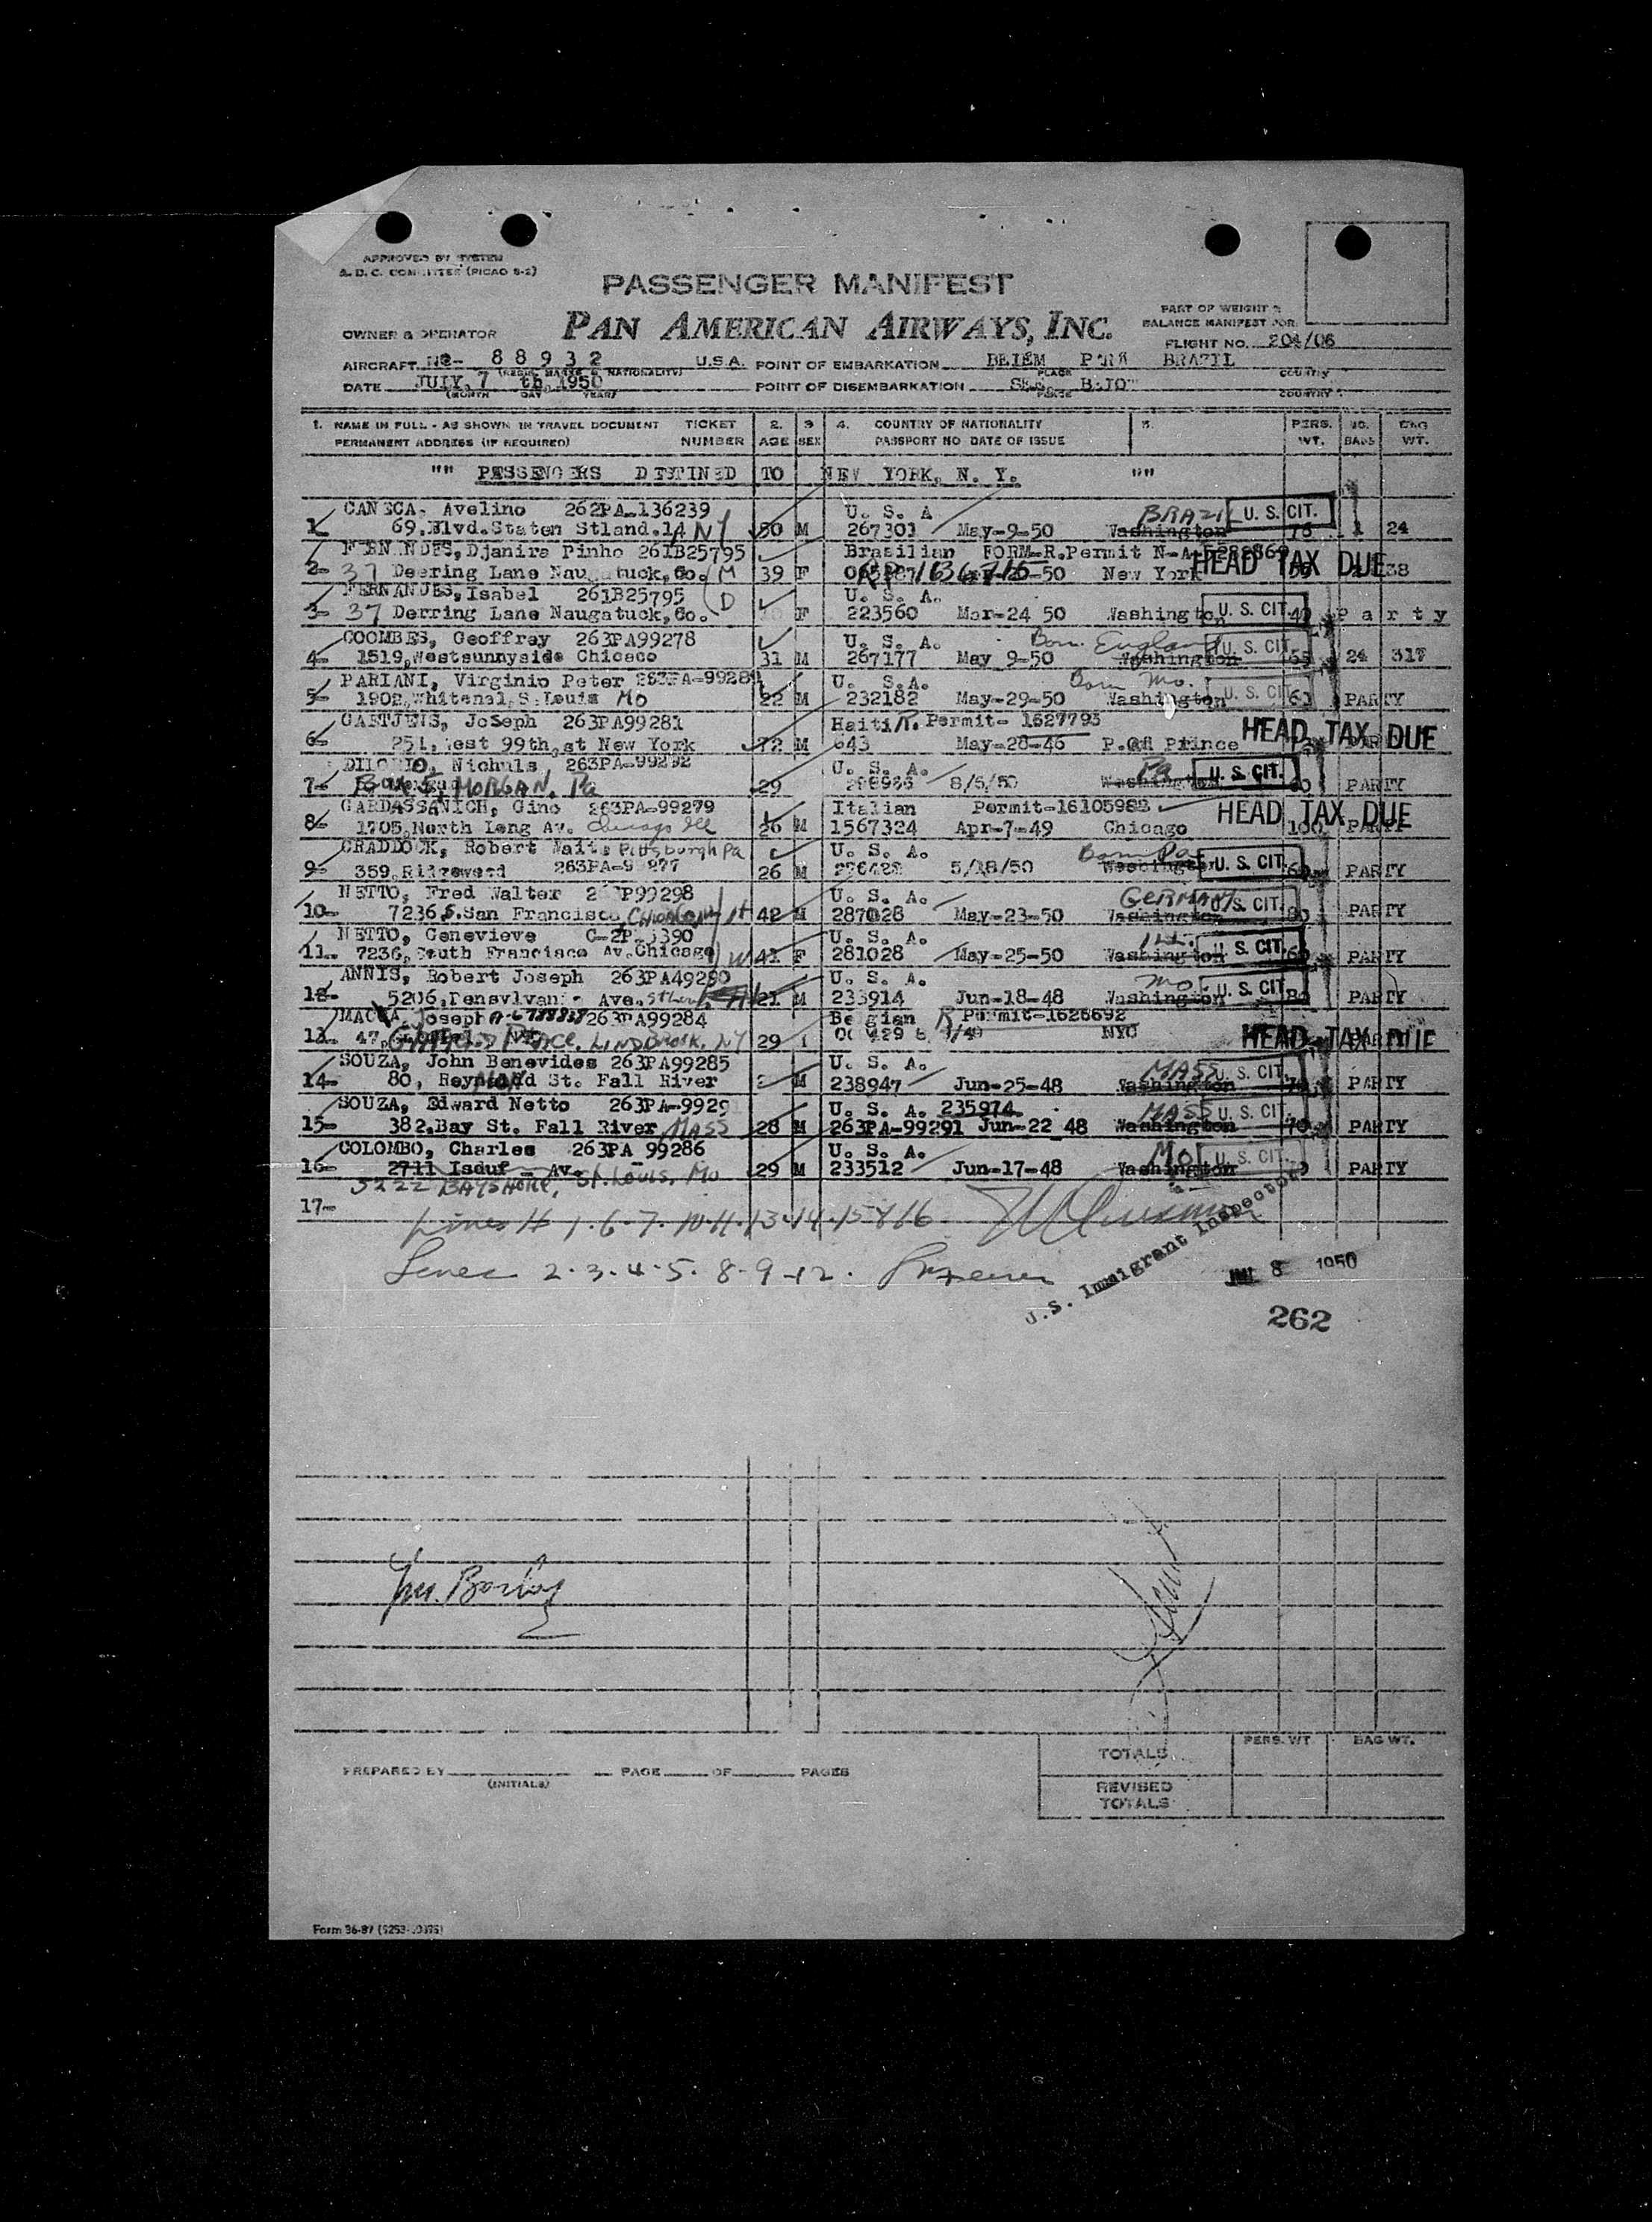 APPROVED BY SYSTEM
A. D. C. COMMITTEE (PICAO 8-2)
PASSENGER MANIFEST
PART OF WEIGHT &
BALANCE MANIFEST FOR
OWNER & OPERATOR PAN AMERICAN AIRWAYS, INC.
FLIGHT NO. 204/06
AIRCRAFT 88932 U.S.A. POINT OF EMBARKATION BELEM BRAZIL
(REGIS. MARKS & NATIONALITY) PLACE COUNTRY
DATE JULY, 7 th, 1950 POINT OF DISEMBARKATION
(MONTH DAY YEAR) PLACE COUNTRY
1. NAME IN FULL - AS SHOWN IN TRAVEL DOCUMENT TICKET 2. 3 4. COUNTRY OF NATIONALITY 5. PERS. NO. BAG
PERMANENT ADDRESS (IF REQUIRED) NUMBER AGE SEX PASSPORT NO DATE OF ISSUE WT. BAGS WT.
"" PASSENGERS DESTINED TO NEW YORK, N. Y. ""
CANECA, Avelino 262PA-136239 U. S. A BRAZIL U. S. CIT.
1- 69,Blvd.Staten Stland.14 NY 50 M 267301 May-9-50 Washington 76 1 24
FERNANDES, Djanira Pinho 261B25795 Brasilian FORM-R.Permit
2- 37 Deering Lane Naugatuck,Co. (M 39 F 1636715 -50 New York HEAD TAX DUE 38
FERNANDES, Isabel 261B25795 U. S. A.
3- 37 Derring Lane Naugatuck,Co. (D F 223560 Mar-24 50 Washington U. S. CIT. 40 Party
COOMBES, Geoffrey 263PA99278 U. S. A. Born England U. S. CIT.
4- 1519,Westsunnyside Chicaco 31 M 267177 May 9-50 Washington 65 24 317
PARIANI, Virginio Peter 263PA-99289 U. S.A. Born Mo.
5- 1902,Whitenal,S.Louis Mo 22 M 232182 May-29-50 Washington U. S. CIT. 60 PARTY
GAETJENS, JoSeph 263PA99281 Haiti R. Permit- 1627793
6- 251, West 99th,st New York M 643 May-28-46 P.Au Prince HEAD TAX DUE
Nichuls, 263PA-99292 U. S. A. Pa U. S. CIT.
7- Box 5, MORGAN, Pa 29 8/5/50 Washington PARTY
GARDASSANICH, Gino 263PA-99279 Italian Permit-16105983
8- 1705,North Long Av. Chicago Ill 26 M 1567324 Apr-7-49 Chicago HEAD TAX DUE 100 PARTY
CRADDOCK, Robert Pittsburgh Pa U. S. A. Born Pa
9- 359, 26 M 5/18/50 Washington U. S. CIT. PARTY
NETTO, Fred Walter U. S. A. GERMANY
10- 7236,S.San Francisco, CHICAGO H 42 M 287028 May-23-50 Washington U. S. CIT. PARTY
NETTO, Genevieve U. S. A. Ill.
11- 7236, South Francisco Av.Chicago W 41 F 281028 May-25-50 Washington U. S. CIT. PARTY
ANNIS, Robert Joseph 263PA49280 U. S. A. Mo
12- 5206, Ave. 21 M 233914 Jun-18-48 Washington U. S. CIT. PARTY
MACCA, Joseph 263PA99284 Belgian R Permit-1626692
13- 47, PLACE, LINDBROOK, NY 29 NYC HEAD TAX DUE
SOUZA, John Benevides 263PA99285 U. S. A. MASS
14- 80, St. Fall River M 238947 Jun-25-48 Washington U. S. CIT. PARTY
SOUZA, Edward Netto U. S. A. 235974 MASS
15- 382.Bay St. Fall River MASS 28 M 263PA-99291 Jun-22 48 Washington U. S. CIT. 70 PARTY
COLOMBO, Charles 263PA 99286 U. S. A. MO
16- 2711 Isduf - Av. 29 M 233512 Jun-17-48 Washington U. S. CIT. PARTY
5222 BAYSHORE, St. Louis, Mo
17- Lines # 1-6-7-10-11-13-14-15 & 16
Lines 2-3-4-5-8-9-12.
U.S. Immigrant Inspector
JUL 8 1950
262
TOTALS PERS. WT. BAG WT.
PREPARED BY (INITIALS) PAGE OF PAGES
REVISED TOTALS